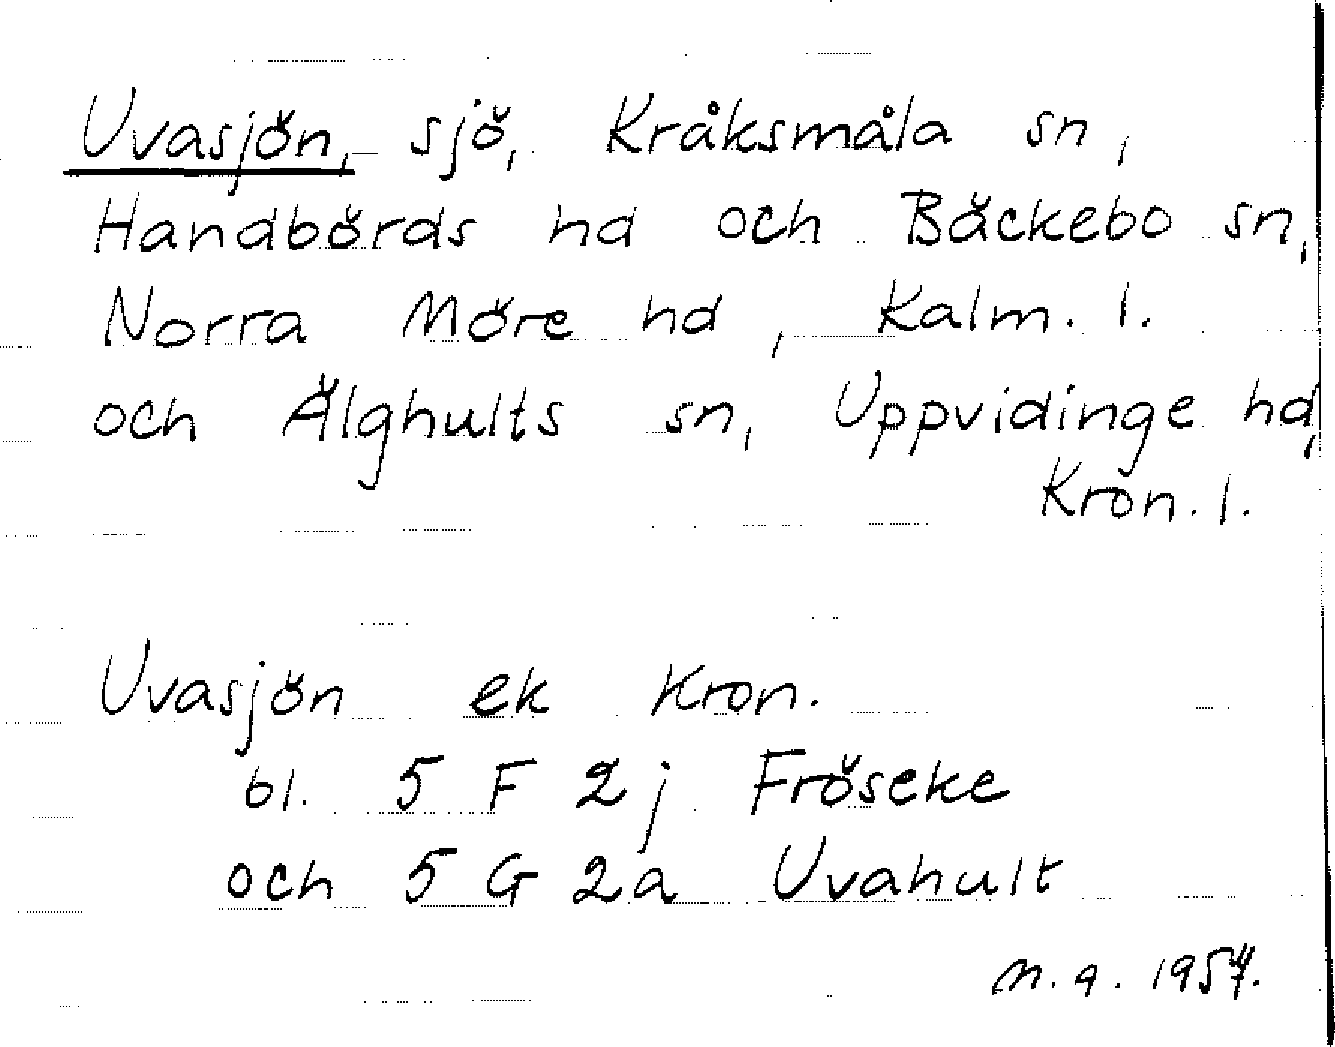 Uvasjön, sjö, Kråksmåla sn,
Handbörds hd och Bäckebo sn,
Norra Möre hd, Kalm. l.
och Älghults sn, Uppvidinge hd,
Kron. l.
Uvasjön ek Kron.
bl. 5 F 2j Fröseke
och 5 G 2a Uvahult
1957.